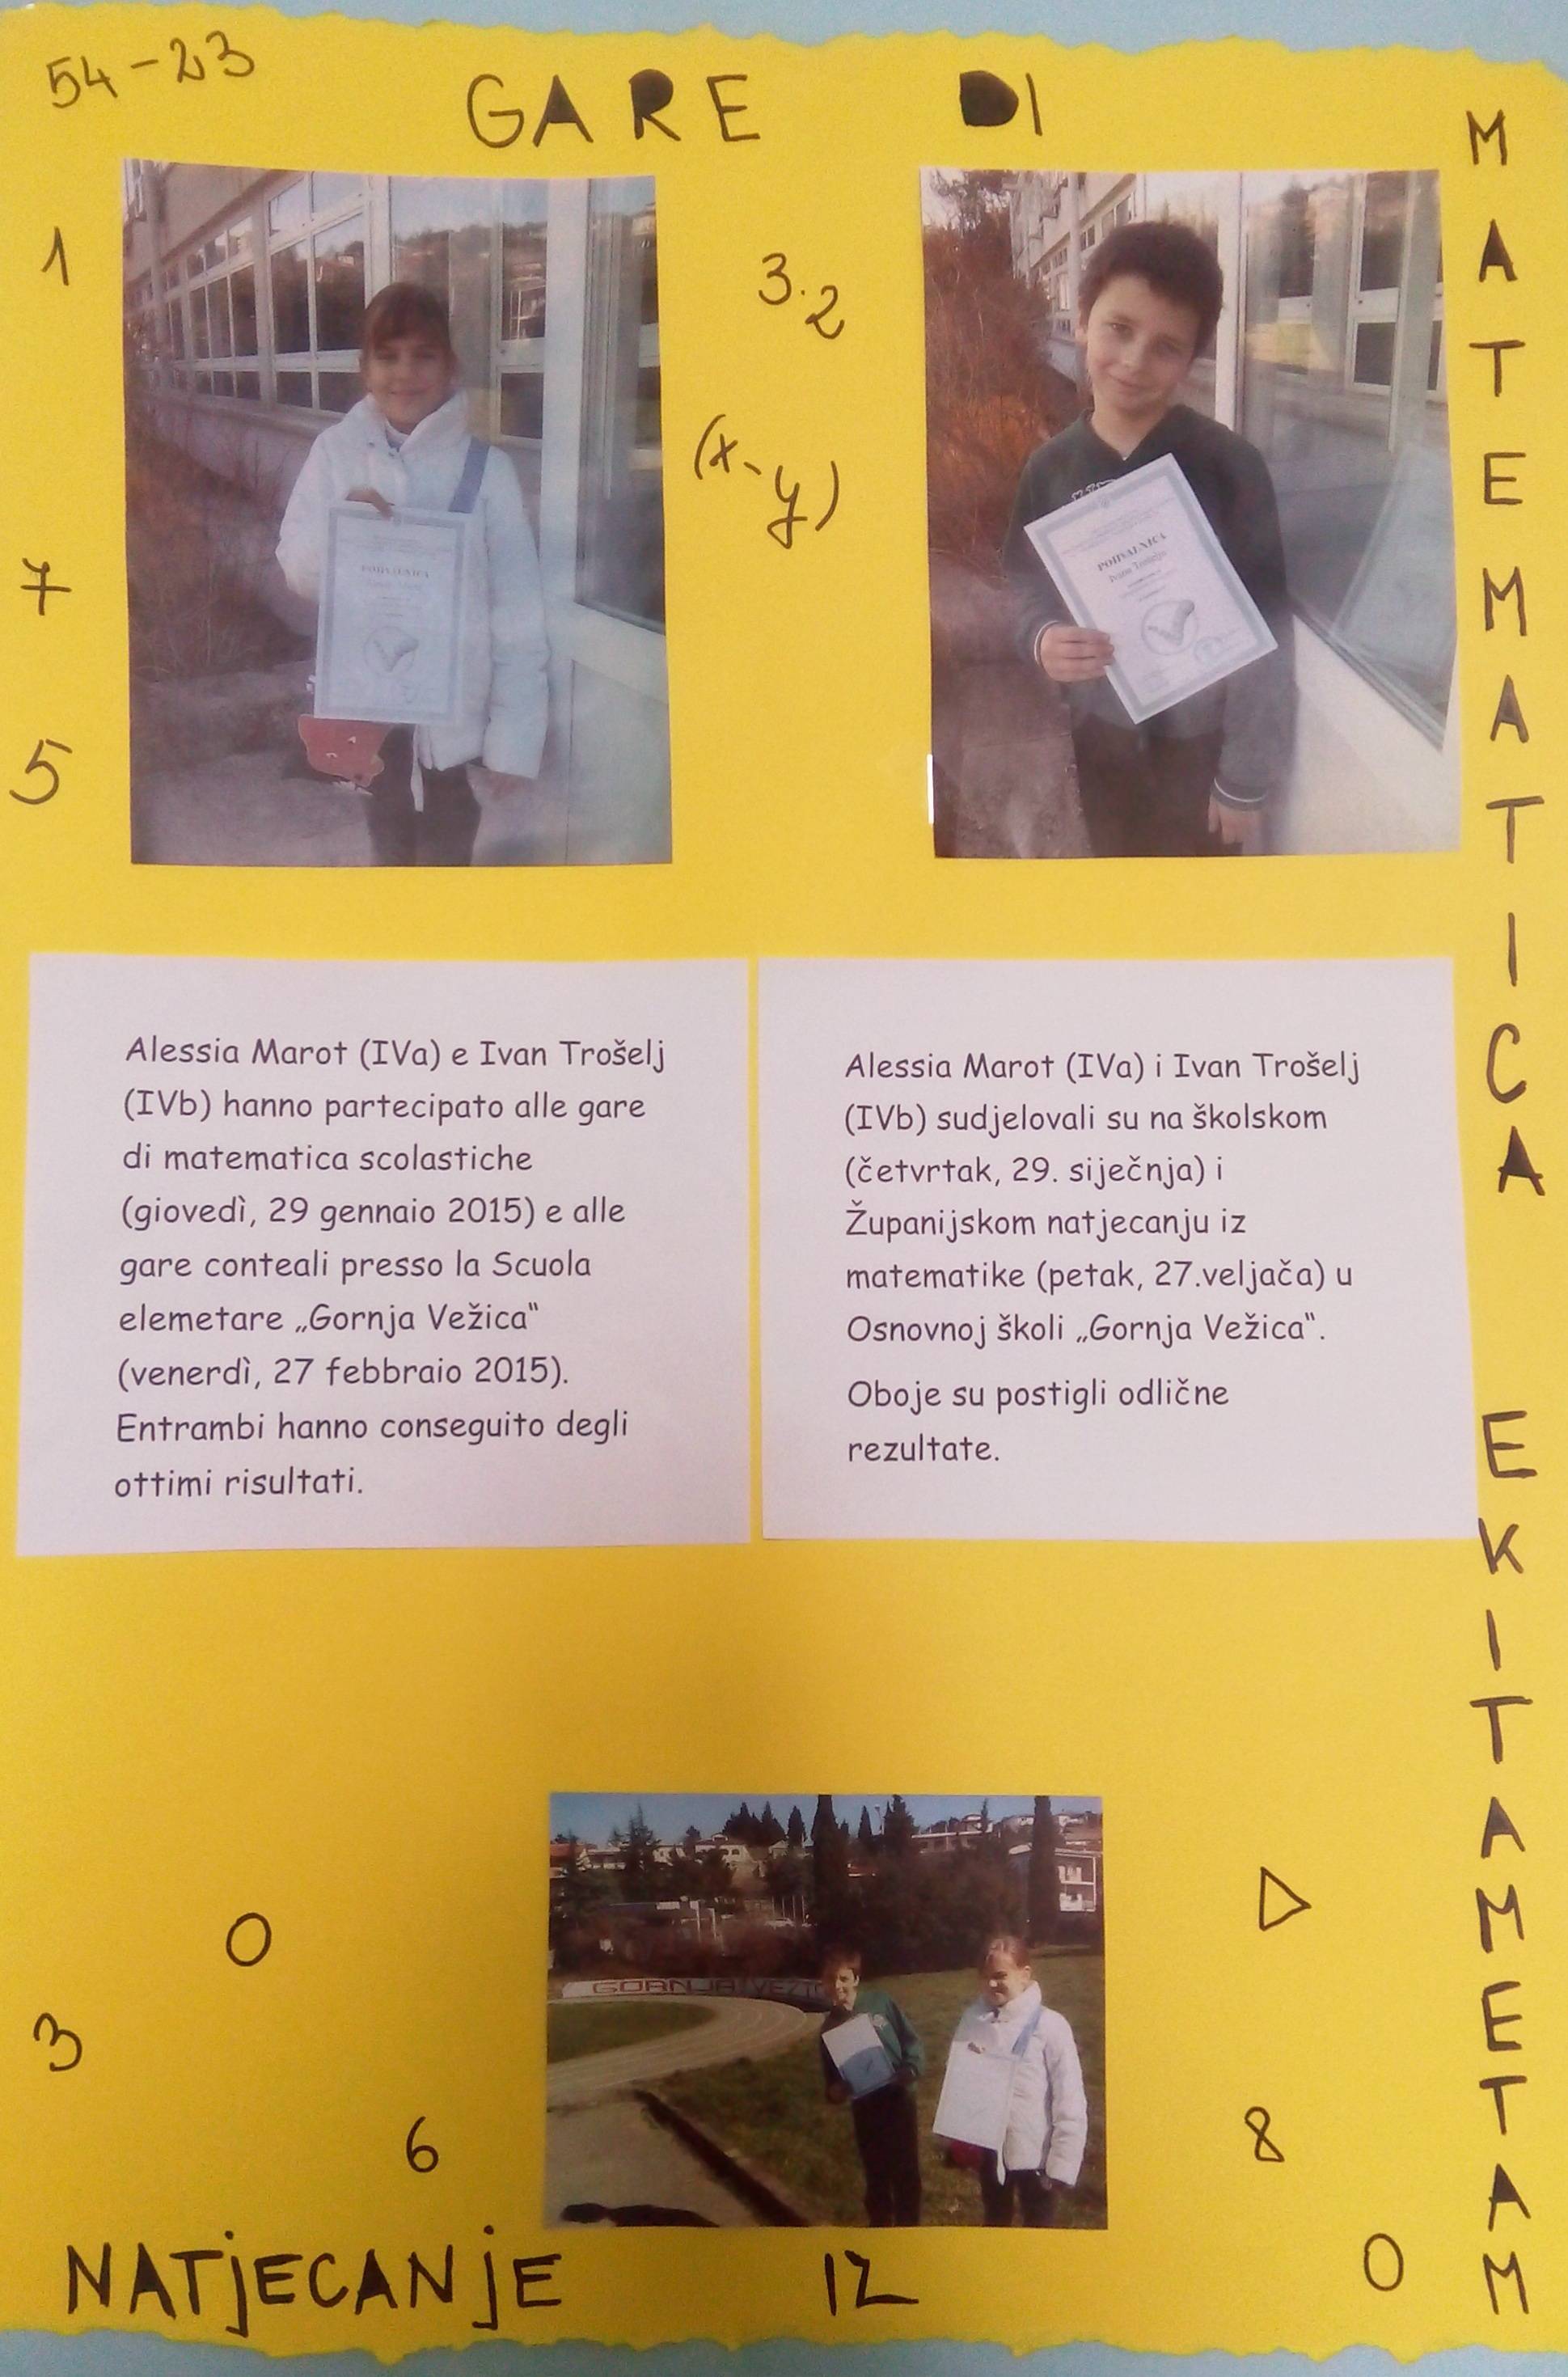 54-23
GARE DI
MATEMATICA
1
3·2
(x-y)
7
5
POHVALNICA
POHVALNICA
Ivan Trošelj
Alessia Marot (IVa) e Ivan Trošelj
(IVb) hanno partecipato alle gare
di matematica scolastiche
(giovedì, 29 gennaio 2015) e alle
gare conteali presso la Scuola
elemetare „Gornja Vežica“
(venerdì, 27 febbraio 2015).
Entrambi hanno conseguito degli
ottimi risultati.
Alessia Marot (IVa) i Ivan Trošelj
(IVb) sudjelovali su na školskom
(četvrtak, 29. siječnja) i
Županijskom natjecanju iz
matematike (petak, 27.veljača) u
Osnovnoj školi „Gornja Vežica“.
Oboje su postigli odlične
rezultate.
EKITAMETAM
0
3
6
GORNJA VEŽIC
8
0
NATjECANjE IZ